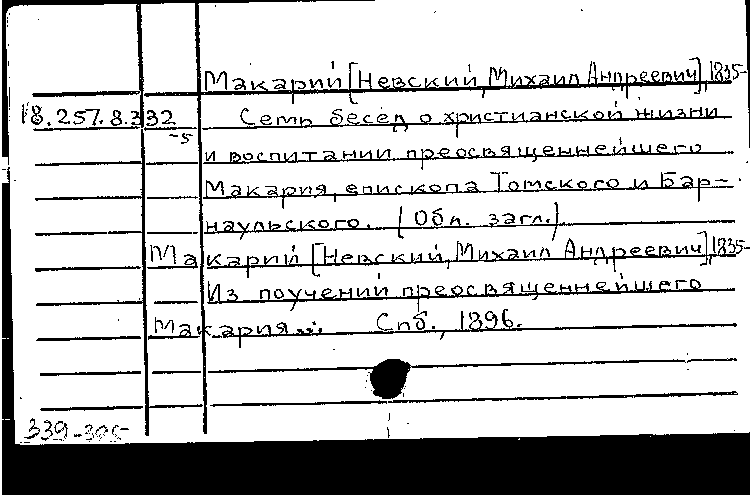 Макарий [Невский, Михаил Андреевич], 1835-
18.257.8.332 Семь бесед о христианской жизни
-5
и воспитании преосвященнейшего
Макария, епископа Томского и Бар-
наульского. [Обл. загл.]
Макарий [Невский, Михаил Андреевич], 1835-
Из поучений преосвященнейшего
Макария... Спб., 1896.
339-